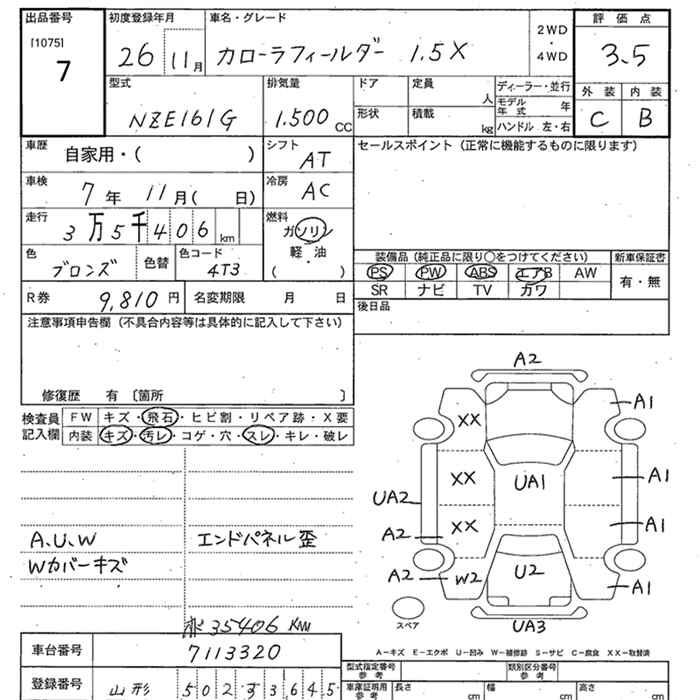 出品番号 初度登録年月 車名・グレード 評価点
[1075] 7 26 11月 カローラフィールダー 1.5X 2WD・4WD 3.5
外装 内装
C B
型式 排気量 ドア 定員 ディーラー・並行
NZE161G 1.500cc 人 モデル年式 年
形状 積載 kg ハンドル 左・右
車歴 シフト セールスポイント (正常に機能するものに限ります)
自家用・( ) AT
車検 冷房
7年 11月( 日) AC
走行 燃料
3万5千406km ガソリン
軽・油
( )
色 色替 色コード 装備品 (純正品に限り○をつけてください) 新車保証書
ブロンズ 4T3 PS PW ABS エアB AW 有・無
SR ナビ TV カワ
R券 9,810円 名変期限 月 日 後日品
注意事項申告欄 (不具合内容等は具体的に記入して下さい)
修復歴 有 〔箇所 〕
検査員記入欄 FW キズ・飛石・ヒビ割・リペア跡・X要
内装 キズ・汚レ・コゲ・穴・スレ・キレ・破レ
A2
XX A1
XX UA1 A1
UA2
XX A1
A2
A2 W2 U2 A1
UA3
スペア
A.U.W エンドパネル歪
Wカバーキズ
35406 KM
A-キズ E-エクボ U-凹み W-補修跡 S-サビ C-腐食 XX-取替済
車台番号 7113320 型式指定番号 参考 類別区分番号 参考
登録番号 山形 502 す 3645 車庫証明用 参考 長さ cm 幅 cm 高さ cm